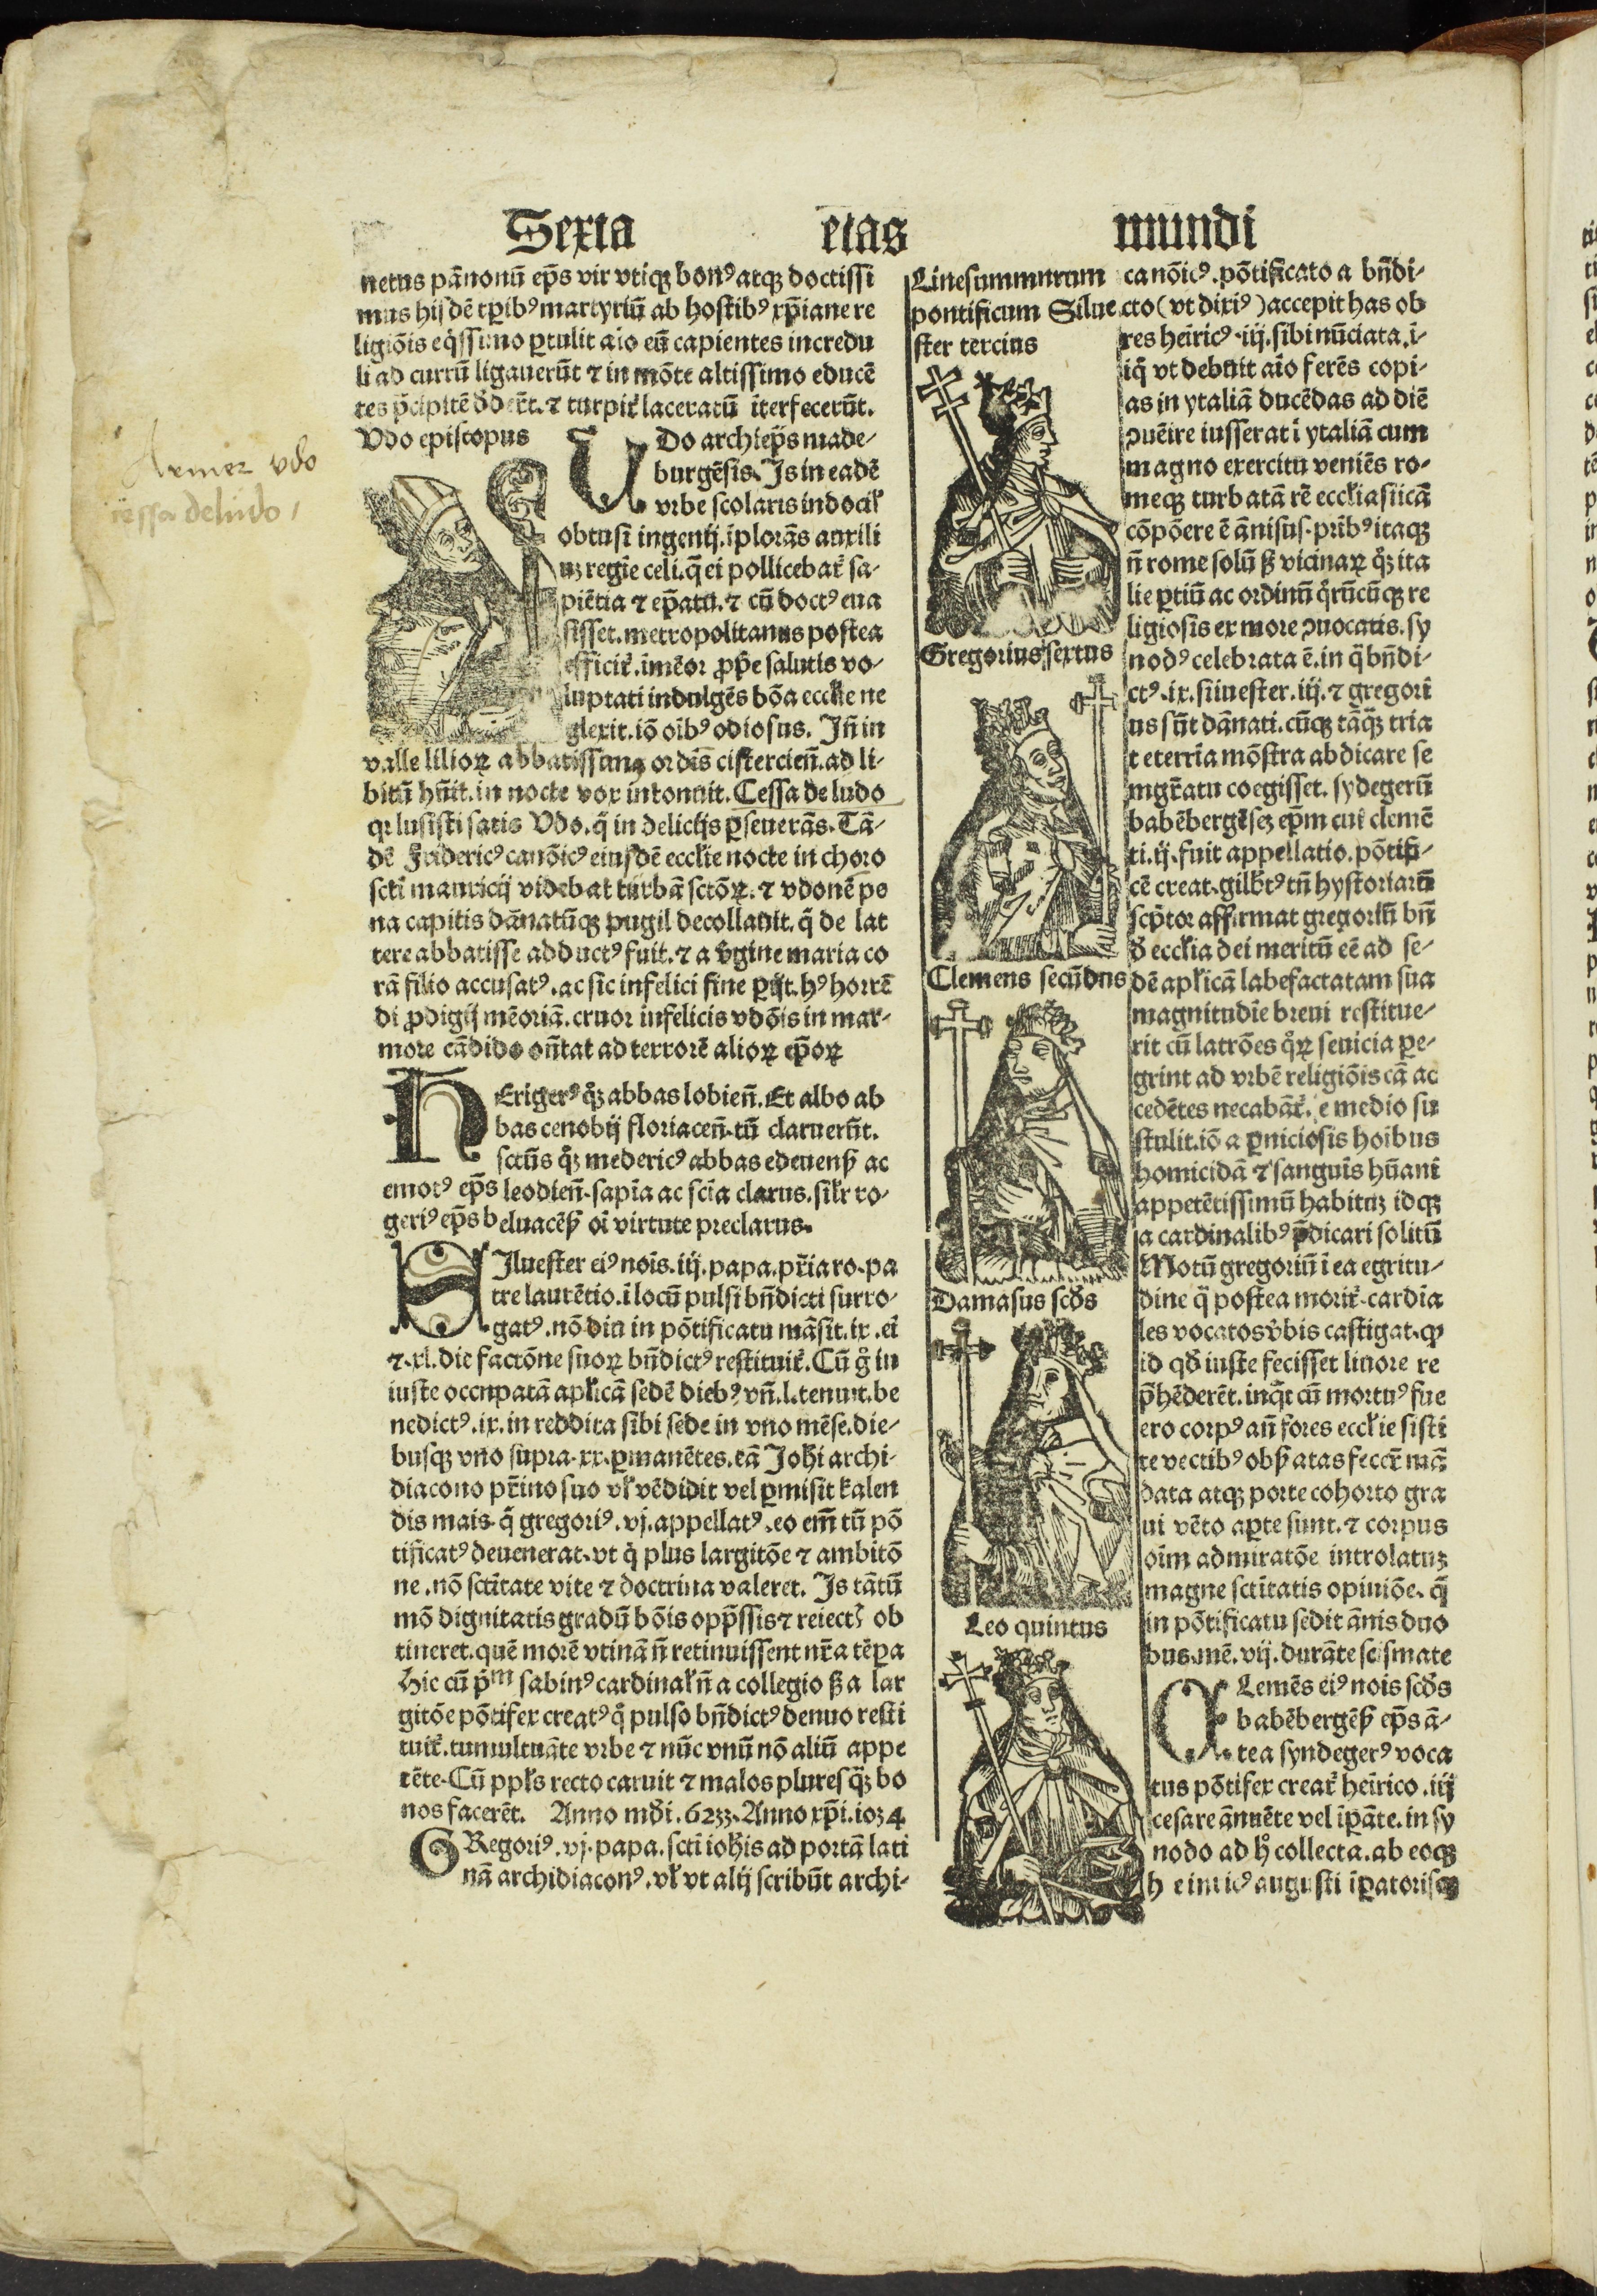 Sexta etas mundi
netus pānonū ep̄s vir vtiqꝫ bonꝰ atqꝫ doctissi
mus hijsdē tꝑibꝰ martyriū ab hostibꝰ xp̄iane re
ligiōis eq̄ssimo ꝑtulit aīo eū capientes incredu
li ad currū ligauerūt ⁊ in mōte altissimo educē
tes p̄cipitē dederūt. ⁊ turpit̛ laceratū īterfecerūt.
Vdo episcopus
VDo archiep̄s made-
burgēsis. Is in eadē
vrbe scolaris indocil̛
obtusi ingenij. īplorās auxili
uꝫ regīe celi. q̄ ei pollicebat̛ sa-
piētia ⁊ ep̄atū. ⁊ cū doctꝰ eua
sisset. metropolitanus postea
efficit̛. īmēor ꝓpe salutis vo-
luptati indulgēs bōa eccl̛ie ne
glexit. iō oībꝰ odiosus. Iñ in
valle lilioꝝ abbatissam ordīs cistercieñ. ad li-
bitū hūit. in nocte vox intonuit. Cessa de ludo
qꝛ lusisti satis Vdo. q̄ in delicijs ꝑseuerās. Tā-
dē Fridericꝰ canōicꝰ eiusdē eccl̛ie nocte in choro
scti mauricij videbat turbā sctōꝝ. ⁊ vdonē pe
na capitis dānatūqꝫ pugil decollauit. q̄ de lat
tere abbatisse adductꝰ fuit. ⁊ a v̄gine maria co
rā filio accusatꝰ. ac sic infelici fine ꝑijt. hꝰ horrē
di ꝓdigij mēoriā. cruor infelicis vdōis in mar-
more cādido oñtat ad terrorē alioꝝ ep̄oꝝ
HErigerꝰ q̊ꝫ abbas lobieñ. Et albo ab
bas cenobij floriaceñ. tū claruerūt.
sctūs q̊ꝫ medericꝰ abbas edeuenß ac
emotꝰ ep̄s leodieñ. sapīa ac scīa clarus. sil̛r ro-
gerꝰ ep̄s beluacēß oī virtute preclarus.
SIluester eiꝰ nois. iij. papa. pr̄ia ro. pa
tre laurētio. ī locū pulsi bn̄dicti surro-
gatꝰ. nō diu in pōtificatu māsit. ix. ei
⁊. xl. die factōne suoꝝ bn̄dictꝰ restituit̛. Cū g̊ in
iuste occupatā apl̛icā sedē diebꝰ vñ. l. tenuit. be
nedictꝰ. ix. in reddita sibi sede in vno mēse. die-
busqꝫ vno supra. xx. ꝑmanētes. eā Ioh̄i archi-
diacono pr̄ino suo vl̛ vēdidit vel ꝑmisit kalen
dis mais. q̄ gregoriꝰ. vj. appellatꝰ. eo em̄ tū pō
tificatꝰ deuenerat. vt q̇ plus largitōe ⁊ ambitō
ne. nō sctītate vite ⁊ doctrina valeret. Is tātū
mō dignitatis gradū bōis opp̄ssis ⁊ reiectꝭ ob
tineret. quē morē vtinā n̄ retinuissent nr̄a tēꝑa
Hic cū p̄m sabinꝰ cardinal̛ n̄ a collegio ß a lar
gitōe pōtifex creatꝰ q̄ pulso bn̄dictꝰ denuo resti
tuit̛. tumultuāte vrbe ⁊ nūc vnū nō aliū appe
tēte. Cū ppl̛s recto caruit ⁊ malos plures q̄ꝫ bo
nos facerēt. Anno mūdi. 6233. Anno xp̄i. 1034
GRegoriꝰ. vj. papa. scti ioh̄is ad portā lati
nā archidiaconꝰ. vl̛ vt alij scribūt archi-
Linea summurum
pontificum Silue
ster tercius
Gregorius sextus
Clemens secūdus
Damasus scd̄s
Leo quintus
canōicꝰ. pōtificato a bn̄di-
cto (vt dixiꝰ) accepit has ob
res heīricꝰ. iij. sibi nūciata. ī-
iq̄ vt debuit aīo ferēs copi-
as in ytaliā ducēdas ad diē
ꝯuēire iusserat ī ytaliā cum
magno exercitu veniēs ro-
meqꝫ turbatā rē eccl̛iasticā
cōpōere ē ānisus. pr̄ibꝰ itaqꝫ
n̄ rome solū ß vicinaꝝ q̊ꝫ ita
lie ꝑtiū ac ordinū q̊rūcūqꝫ re
ligiosis ex more ꝯuocatis. sy
nodꝰ celebrata ē. in q̄ bn̄di-
ctꝰ. ix. siluester. iij. ⁊ gregori
us sūt dānati. cūqꝫ tāq̄ꝫ tria
teterria mōstra abdicare se
mgr̄atu coegisset. sydegerū
babēbergēseꝫ ep̄m cui clemē
ti. ij. fuit appellatio. pōtifi-
cē creat. gilb̄tꝰ tn̄ hystoriarū
scp̄tor affirmat gregoriū bn̄
d̄ eccl̛ia dei meritū eē ad se-
dē apl̛icā labefactatam sua
magnitudīe breui restitue-
rit cū latrōes q̊ꝝ seuicia ꝑe-
grint ad vrbē religiōis cā ac
cedētes necabāt̛. e medio su
stulit. iō a ꝑniciosis hoībus
homicidā ⁊ sanguīs hūani
appetētissimū habituꝫ idqꝫ
a cardinalibꝰ p̄dicari solitū
Motū gregoriū ī ea egritu-
dine q̄ postea morit̛. cardīa
les vocatos v̄bis castigat. ꝙ
id qd̄ iuste fecisset liuore re
p̄hēderēt. inq̄t cū mortuꝰ fue
ero corpꝰ an̄ fores eccl̛ie sisti
te vectibꝰ obß atas fecer̄ mā
data atqꝫ porte cohorto gra
ui vēto aꝑte sunt. ⁊ corpus
oīm admiratōe introlatuꝫ
magne sctītatis opiniōe. q̄
in pōtificatu sedit ānis duo
bus. mē. vij. durāte scismate
CLemēs eiꝰ nois scd̄s
babēbergēß ep̄s ā-
tea syndegerꝰ voca
tus pōtifex creat̛ heīrico. iij
cesare ānuēte vel īꝑāte. in sy
nodo ad h̊ collecta. ab eoqꝫ
heinricꝰ augusti īꝑatorisqꝫ
vdo
cessa de ludo